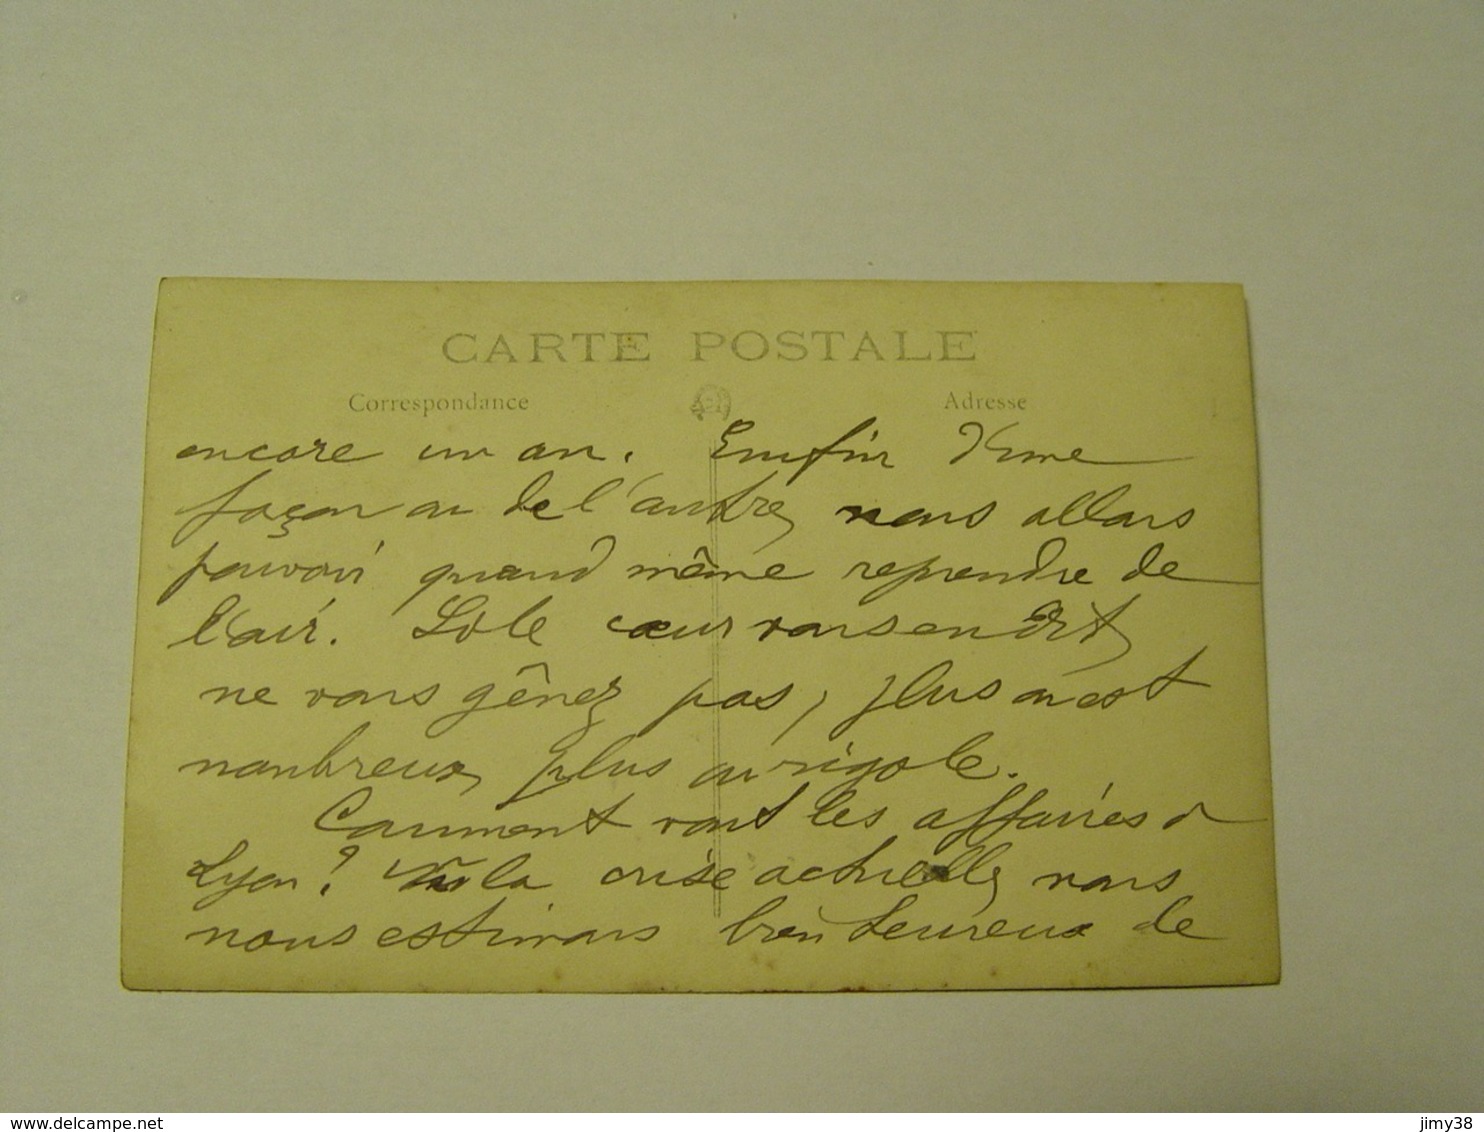 CARTE POSTALE
Correspondance
Adresse
encore un an. Enfin d'une
façon ou de l'autre, nous allons
pouvoir quand même reprendre de
l'air. Si le cœur vous en dit,
ne vous gênez pas, plus on est
nombreux, plus on rigole.
Comment vont les affaires à
Lyon? Vu la crise actuelle, nous
nous estimons bien heureux de
delcampe.net
jimy38